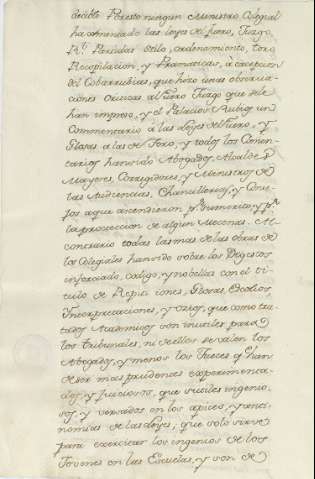 decible. Por esto ningun Ministro, Colegial
ha Comentado las leyes del fuero, Juzgo,
Rl. Partidas Stilo, ordenamiento, toro
Recopilacion, y Pracmaticas, à excepcion
del Cobarrubias, que hizo unas observa-
ciones Criticas al fuero Juzgo que se le
han impreso, y el Palacios Rubios un
Commentario à las Leyes del fuero, y
Glosas a las de Toro, y todos los Comen-
tarios han sido Abogados, Alcaldes
Mayores, Corregidores, y Ministros de
las Audiencias, Chancillerias, y Conse-
jos à que ascendieron pr. su merito, y pr.
la proteccion de algun Mecenas. Al
contrario todas las mas de las obras de
los Colegiales han sido sobre los Digestos
inforciado, codigo, y nobellas con el ti-
tulo de Repeticiones, Glosas,
Ynterpretaciones, y otros, que como tra-
tados Academicos son inutiles para
los tribunales, ni de ellos se valen los
Abogados, y menos los Jueces q.e han
de ser mas prudentes experimenta-
dos, y juiciosos, que sutiles ingenio-
sos, y versados en los apices, y anti-
nomias de las Leyes, que solo sirven
para exercitar los ingenios de los
Jovenes en las Escuelas, y son de